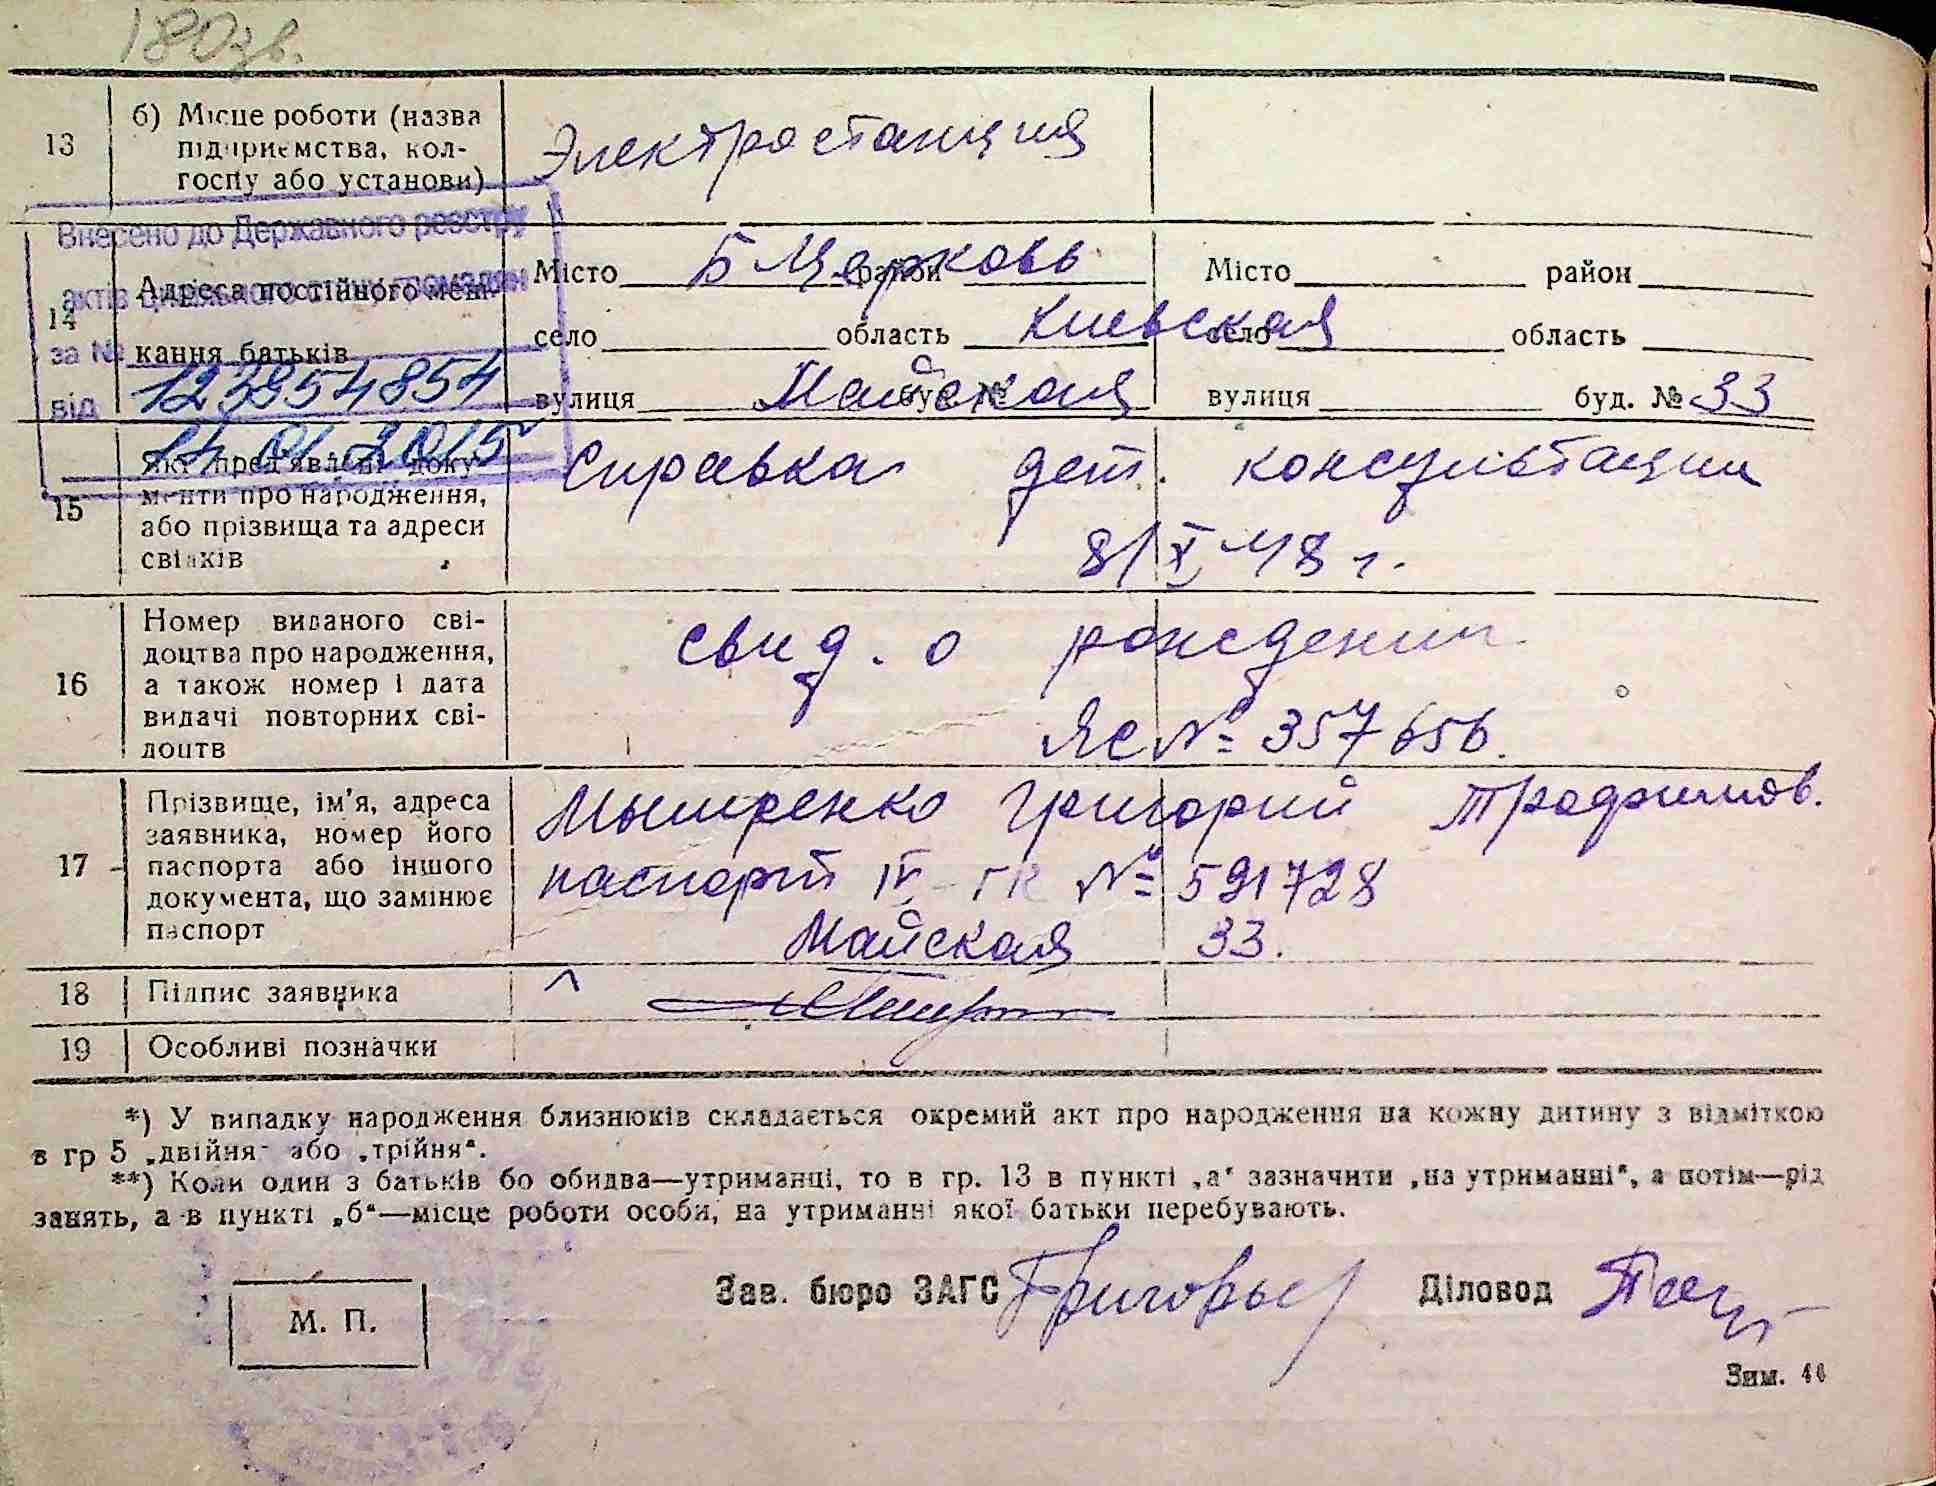 180зв.
13
б) Місце роботи (назва
підприємства, кол-
госпу або установи)
Электростанция
Внесено до Державного реєстру
актів цивільного стану громадян
за №
12395 4854
від
14.01.2015
14
Адреса постійного меш-
кання батьків
Місто Б Церковь район
село область Киевская
вулиця Майская буд. №
Місто район
село область
вулиця буд. № 33
15
які пред'явлені доку-
менти про народження,
або прізвища та адреси
свідків
Справка дет. консультации
8/X 48 г.
16
Номер виданого сві-
доцтва про народження,
а також номер і дата
видачі повторних сві-
доцтв
свид. о рождении
ЯС № 357656.
17
Прізвище, ім'я, адреса
заявника, номер його
паспорта або іншого
документа, що замінює
паспорт
Григорий Трофимов.
паспорт IV-ГК № 591728
Майская 33.
18
Підпис заявника
19
Особливі позначки
*) У випадку народження близнюків складається окремий акт про народження на кожну дитину з відміткою
в гр 5 „двійня" або „трійня".
**) Коли один з батьків бо обидва—утриманці, то в гр. 13 в пункті „а" зазначити „на утриманні", а потім—рід
занять, а в пункті „б"—місце роботи особи, на утриманні якої батьки перебувають.
М. П.
Зав. бюро ЗАГС
Діловод
Зим. 44